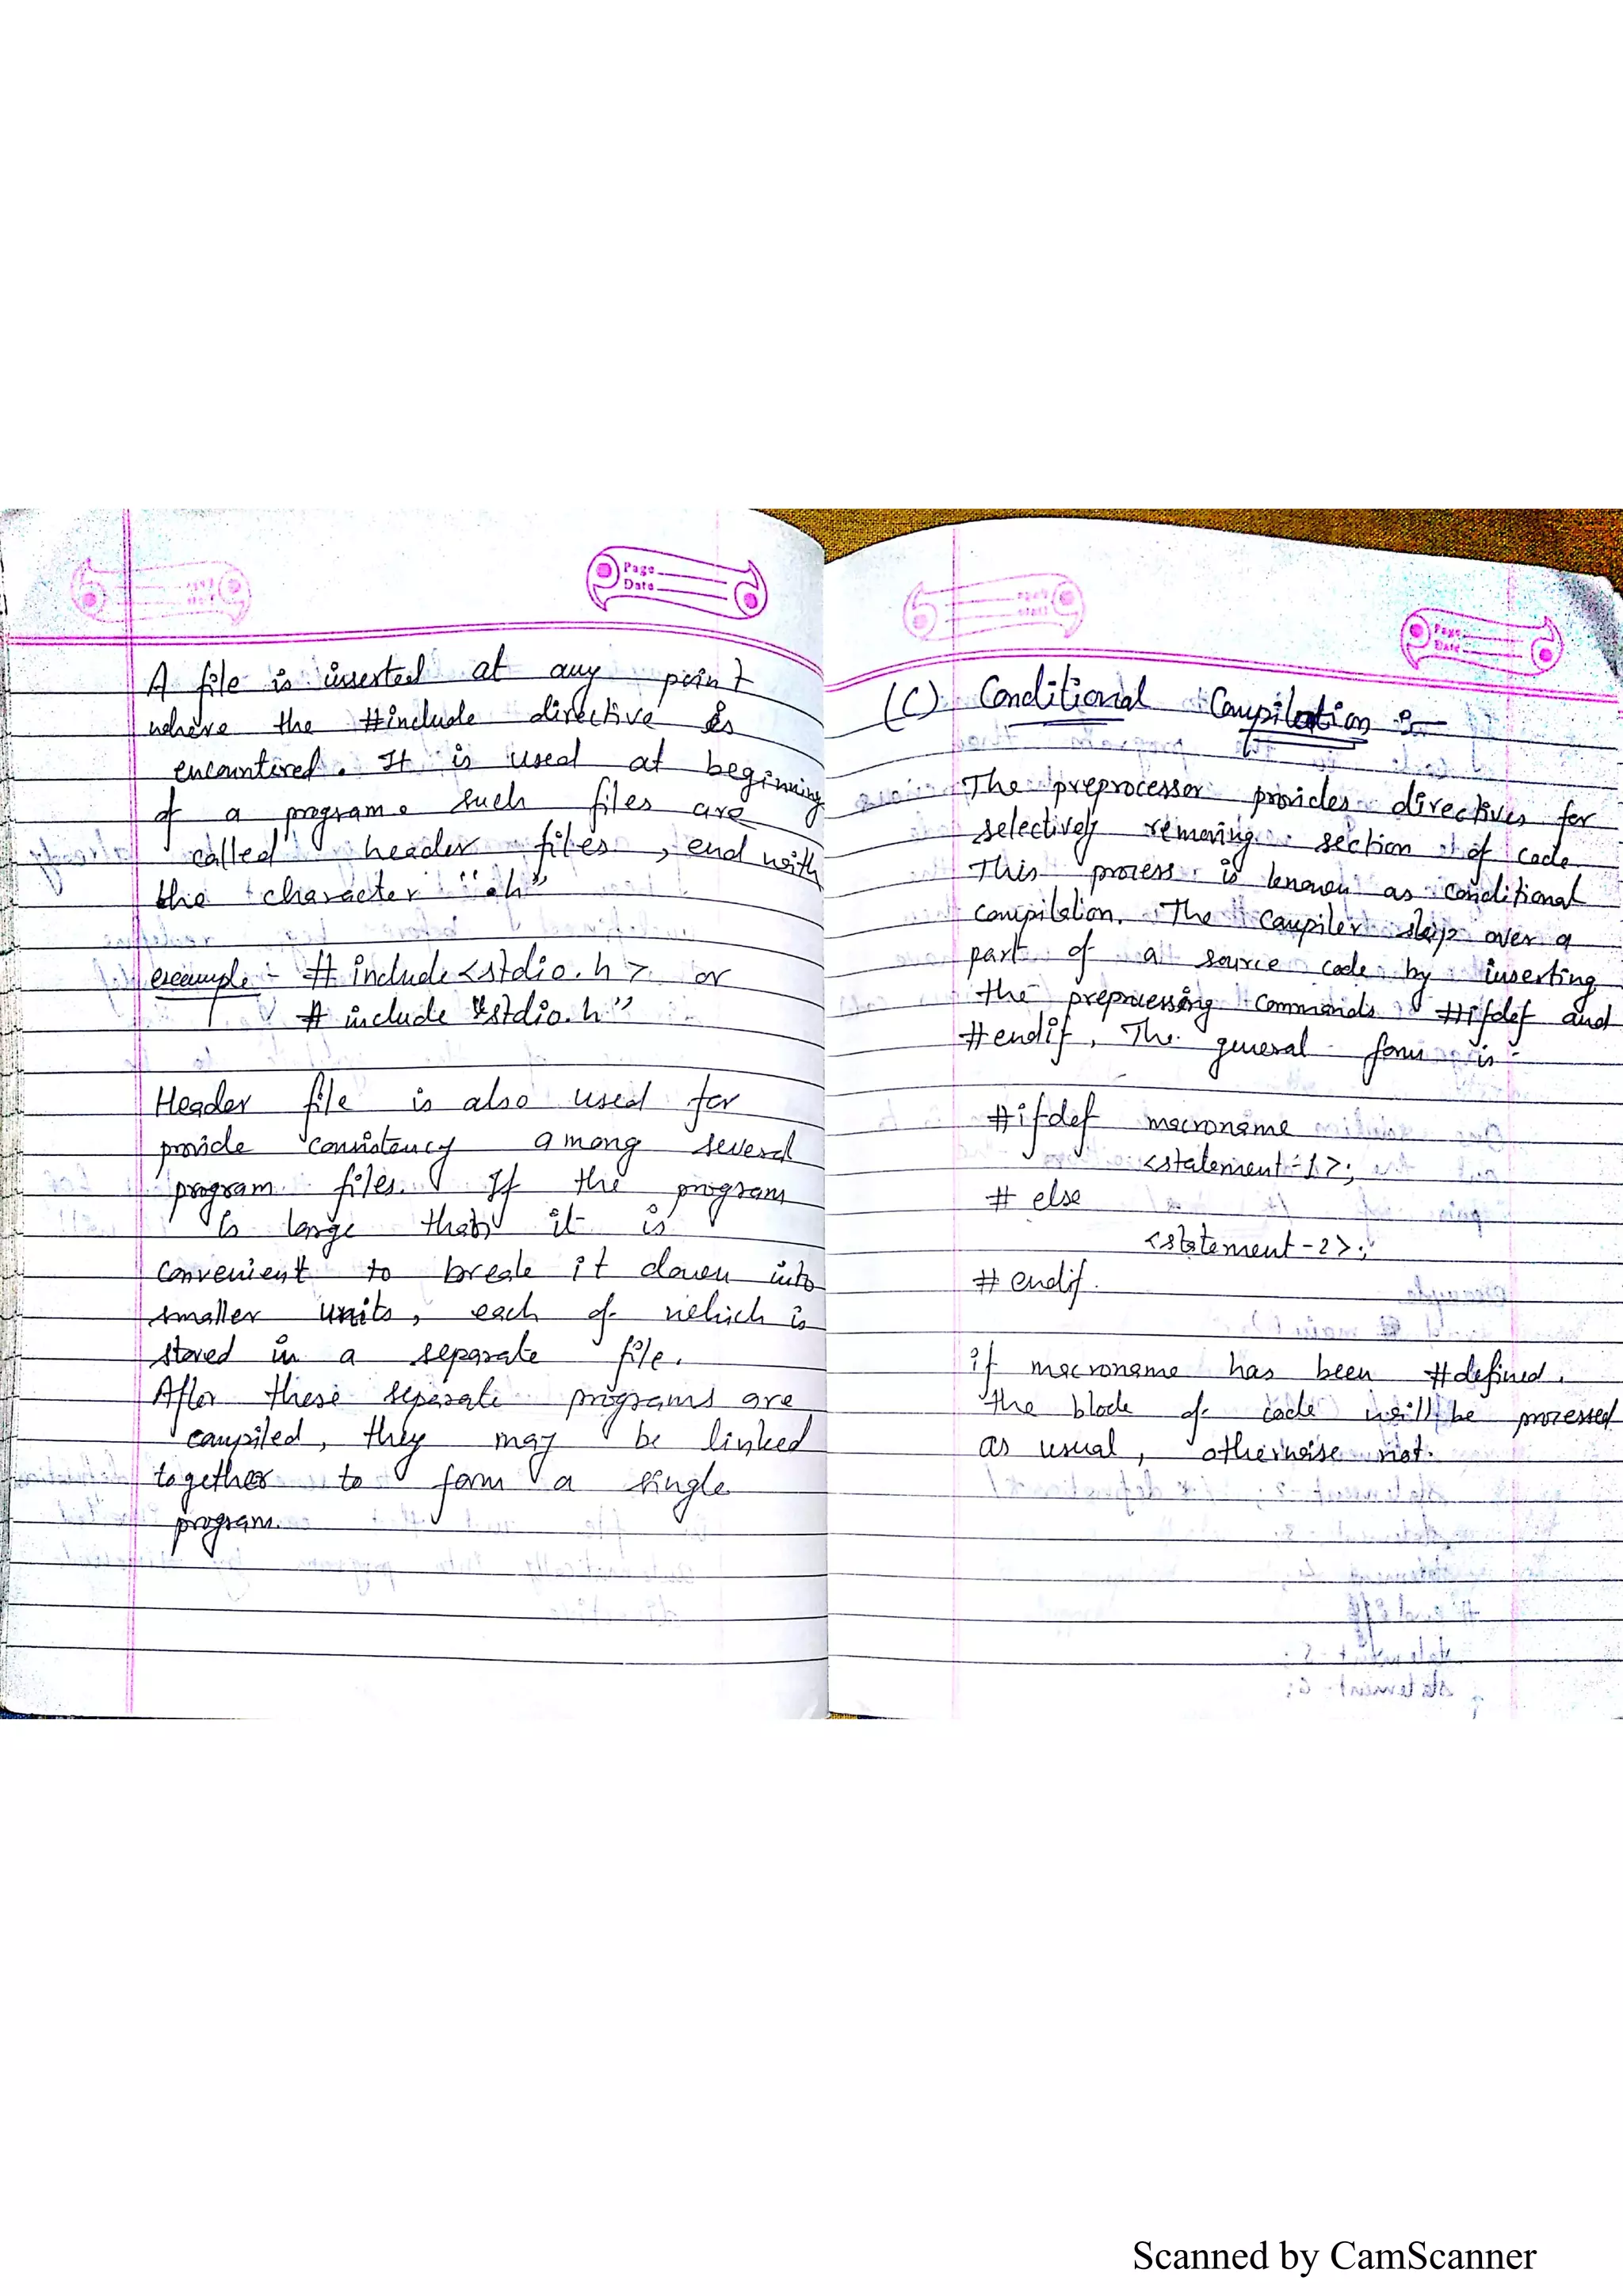 Page
Date
A file is inserted at any point
where the #include directive is
encountered. It is used at beginning
of a program. Such files are
called header files, end with
the character ".h"
example:- # include <stdio.h> or
# include "stdio.h"
Header file is also used for
provide consistency among several
program files. If the program
is large that it is
convenient to break it down into
smaller units, each of which is
stored in a separate file.
After these separate programs are
compiled, they may be linked
together to form a single
program.
Page
Date
(C) Conditional Compilation :-
The preprocessor provides directives for
selectively removing section of code.
This process is known as conditional
compilation. The compiler skip over a
part of a source code by inserting
the preprocessing commands #ifdef and
#endif, The general form is -
#ifdef macroname
<statement-1>;
# else
<statement-2>;
# endif.
if macroname has been #defined,
the block of code will be processed
as usual, otherwise not.
Scanned by CamScanner